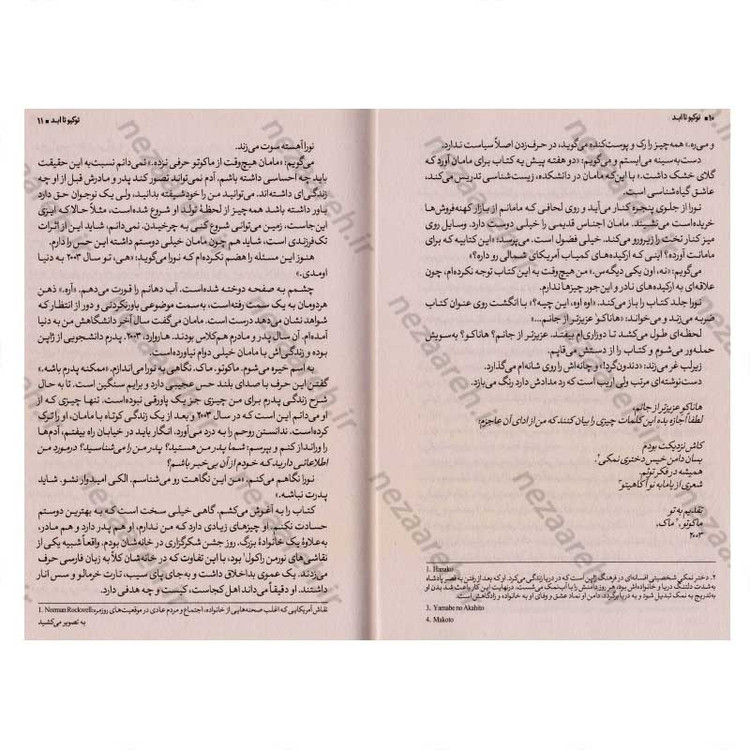 ۱۰ ■ توکیو تا ابد
و می‌ره.» همه‌چیز را رک و پوست‌کنده می‌گوید، در حرف‌زدن اصلاً سیاست ندارد.
دست‌به‌سینه می‌ایستم و می‌گویم: «دو هفته پیش یه کتاب برای مامان آورد که
گلای خشک داشت.» با این‌که مامان در دانشکده، زیست‌شناسی تدریس می‌کند،
عاشق گیاه‌شناسی است.
نورا از جلوی پنجره کنار می‌آید و روی لحافی که مامانم از بازار کهنه‌فروش‌ها
خریده‌است می‌نشیند. مامان اجناس قدیمی را خیلی دوست دارد. وسایل روی
میز کنار تخت را زیرورو می‌کند. خیلی فضول است. می‌پرسد: «این کتابیه که برای
مامانت آورده؟ اینی که ارکیده‌های کمیاب آمریکای شمالی رو داره؟»
می‌گویم: «نه، اون یکی دیگه‌س.» من هیچ‌وقت به این کتاب توجه نکرده‌ام، چون
علاقه‌ای به ارکیده‌های نادر و این‌جور چیزها ندارم.
نورا جلد کتاب را باز می‌کند. «اوه اوه، این چیه؟» با انگشت روی عنوان کتاب
ضربه می‌زند و می‌خواند: «هاناکو عزیزتر از جانم...»
لحظه‌ای طول می‌کشد تا دوزاری‌ام بیفتد. عزیزتر از جانم؟ هاناکو؟ به‌سویش
حمله‌ور می‌شوم و کتاب را از دستش می‌قاپم.
زیرلب غر می‌زند: «دندون‌گرد!» و چانه‌اش را روی شانه‌ام می‌گذارد.
دست‌نوشته‌ای مرتب ولی اریب است که رد مدادش دارد رنگ می‌بازد.
هاناکو عزیزتر از جانم،
لطفاً اجازه بده این کلمات چیزی را بیان کنند که من از ادای آن عاجزم:
کاش نزدیکت بودم
بسان دامن خیس دختری نمکی!
همیشه در فکر توئم.
شعری از یامابه نو آکاهیتو
تقدیم به تو
ماکوتو، "ماک"،
۲۰۰۳
1. Hanako
۲. دختر نمکی شخصیتی افسانه‌ای در فرهنگ ژاپن است که در دریا زندگی می‌کرد. او که بعد از رفتن به قصر پادشاه
به‌شدت دلتنگ دریا و خانواده‌اش بود، هر روز دامنش را با آب نمک می‌شست. درنهایت این کار باعث شد بدن او
به‌تدریج به نمک تبدیل شود و به دریا برگردد. دامن او نماد عشق و وفای او به خانواده و زادگاهش است.
3. Yamabe no Akahito
4. Makoto
توکیو تا ابد ■ ۱۱
نورا آهسته سوت می‌زند.
می‌گویم: «مامان هیچ‌وقت از ماکوتو حرفی نزده.» نمی‌دانم نسبت‌به این حقیقت
باید چه احساسی داشته باشم. آدم نمی‌تواند تصور کند پدر و مادرش قبل از او چه
زندگی‌ای داشته‌اند. می‌توانید من را خودشیفته بدانید، ولی یک نوجوان حق دارد
باور داشته باشد همه‌چیز از لحظهٔ تولد او شروع شده‌است، مثلاً حالا که ایزی
این‌جاست، زمین می‌توانی شروع کنی به چرخیدن. نمی‌دانم، شاید این از اثرات
تک‌فرزندی است، شاید هم چون مامان خیلی دوستم داشته این حس را دارم.
هنوز این مسئله را هضم نکرده‌ام که نورا می‌گوید: «هی، تو سال ۲۰۰۳ به دنیا
اومدی.»
چشمم به صفحه دوخته شده‌است. آب دهانم را قورت می‌دهم. «آره.» ذهن
هردومان به یک سمت رفته‌است، به‌سمت موضوعی باورنکردنی و دور از انتظار که
شواهد نشان می‌دهد درست است. مامان می‌گفت سال آخر دانشگاهش من به دنیا
آمده‌ام. آن سال پدر و مادرم هم‌کلاس بودند. هاروارد، ۲۰۰۳. پدرم دانشجویی از ژاپن
بوده و زندگی‌اش با مامان خیلی دوام نیاورده‌است.
به اسم خیره می‌شوم. ماکوتو. ماک. نگاهی به نورا می‌اندازم. «ممکنه پدرم باشه.»
گفتن این حرف با صدای بلند حس عجیبی دارد و برایم سنگین است. تا به حال
شرح زندگی پدرم برای من چیزی جز یک پاورقی نبوده‌است. تنها چیزی که از
او می‌دانم این است که در سال ۲۰۰۳ و بعد از یک زندگی کوتاه با مامان، او را ترک
کرده‌است. ندانستن روحم را به درد می‌آورد. انگار باید در خیابان راه بیفتم، آدم‌ها
را ورانداز کنم و بپرسم: شما پدر من هستید؟ پدر من را می‌شناسید؟ درمورد من
اطلاعاتی دارید که خودم از آن بی‌خبر باشم؟
نورا نگاهم می‌کند. «من این نگاهت رو می‌شناسم. الکی امیدوار نشو. شاید
پدرت نباشه.»
کتاب را به آغوش می‌کشم. گاهی خیلی سخت است که به بهترین دوستم
حسادت نکنم. او چیزهای زیادی دارد که من ندارم. او هم پدر دارد و هم مادر،
به‌علاوهٔ یک خانوادهٔ بزرگ. روز جشن شکرگزاری در خانه‌شان بودم. واقعاً شبیه یکی از
نقاشی‌های نورمن راکول بود، با این تفاوت که در خانه‌شان کلاً به زبان فارسی حرف
می‌زدند. یک عموی بداخلاق داشت و به‌جای پای سیب، تارت خرمالو و سس انار
داشتند. او دقیقاً می‌داند اهل کجاست، کیست و چه هدفی دارد.
1. Norman Rockwell: نقاش آمریکایی که اغلب صحنه‌هایی از خانواده، اجتماع و مردم عادی در موقعیت‌های روزمره
به تصویر می‌کشید
nezaareh.ir